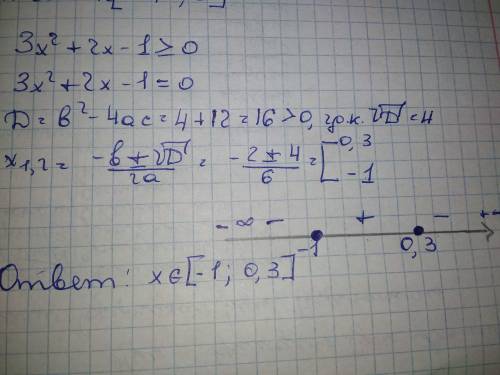 3x² + 2x - 1 ≥ 0
3x² + 2x - 1 = 0
D = b² - 4ac = 4 + 12 = 16 > 0, 2 д.к. √D = 4
x₁,₂ = (-b ± √D)/2a = (-2 ± 4)/6 = [0,3 -1
-∞ - + - +∞
-1 0,3
Ответ: x ∈ [-1; 0,3]